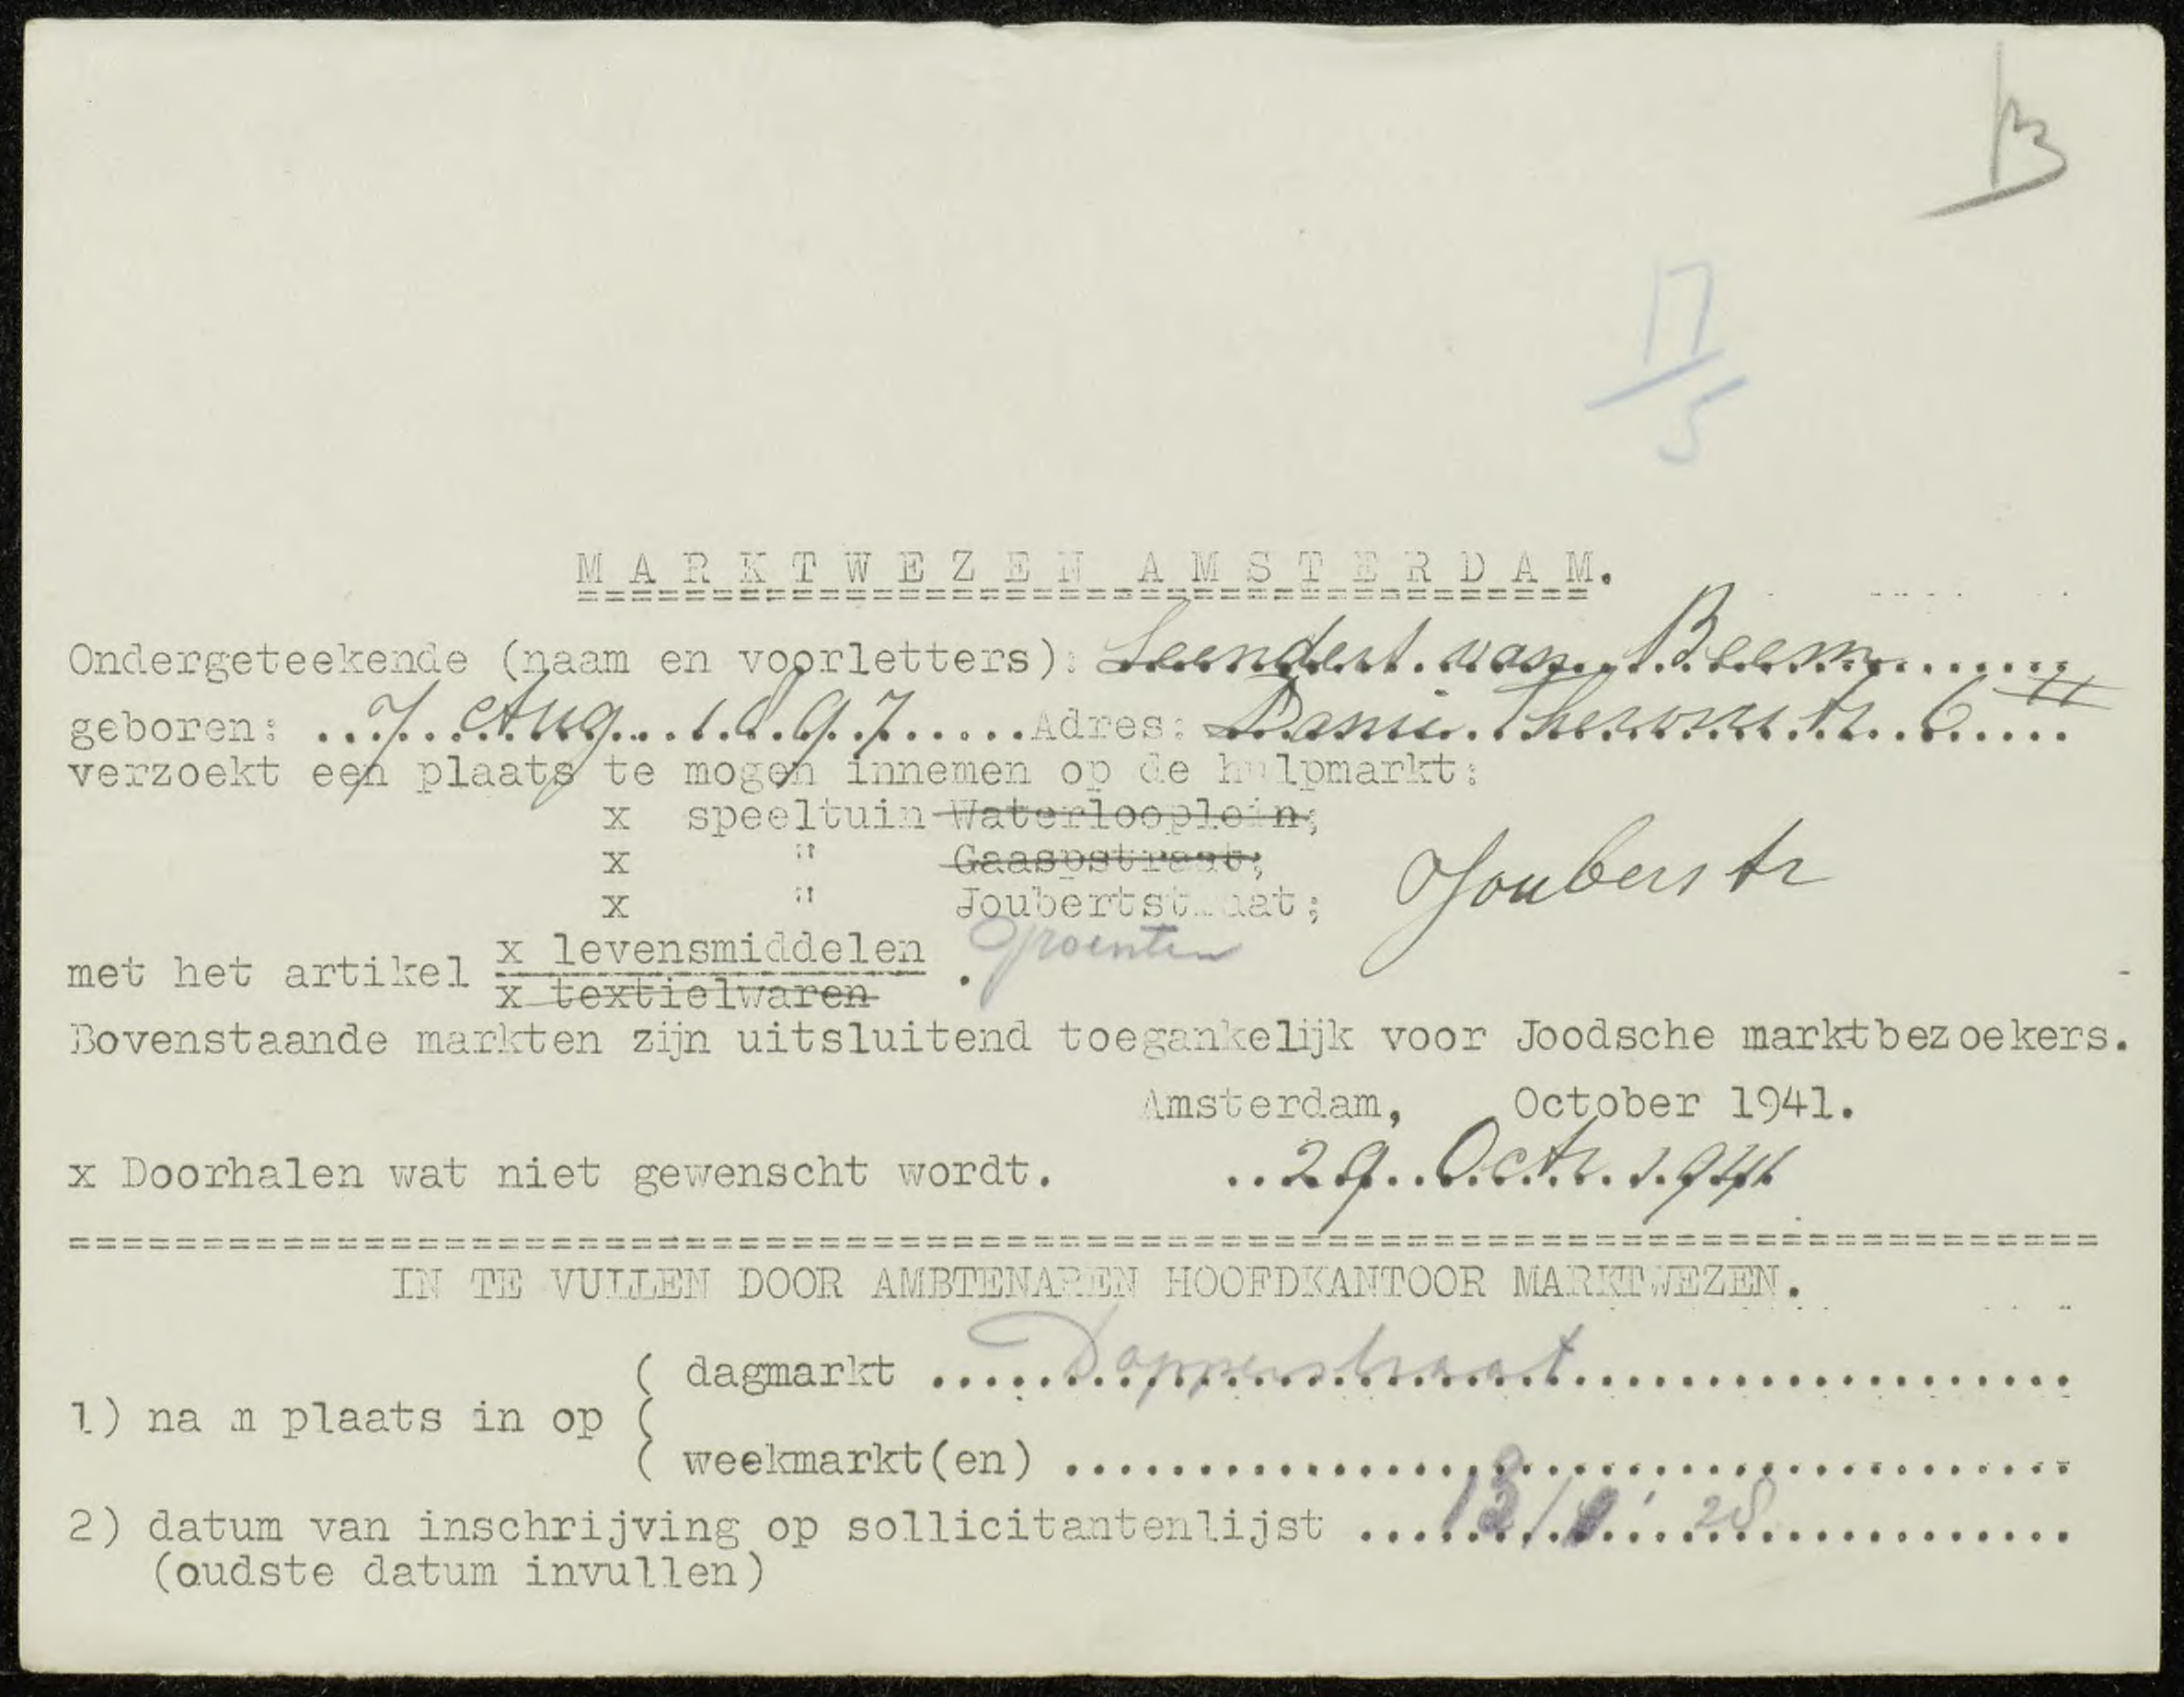 B
17/5
MARKTWEZEN AMSTERDAM.
Ondergeteekende (naam en voorletters): Leendert van Beem
geboren: 7 Aug 1897 Adres: Danie Theronstr. 6 II
verzoekt een plaats te mogen innemen op de hulpmarkt:
x speeltuin Waterlooplein;
x " Gaaspstraat;
x " Joubertstraat; Jouberstr
met het artikel x levensmiddelen . Groenten
x textielwaren
Bovenstaande markten zijn uitsluitend toegankelijk voor Joodsche marktbezoekers.
Amsterdam, October 1941.
x Doorhalen wat niet gewenscht wordt. 29 Octr. 1941
IN TE VULLEN DOOR AMBTENAREN HOOFDKANTOOR MARKTWEZEN.
( dagmarkt Dapperstraat
1) nam plaats in op (
( weekmarkt(en)
2) datum van inschrijving op sollicitantenlijst 28
(oudste datum invullen)